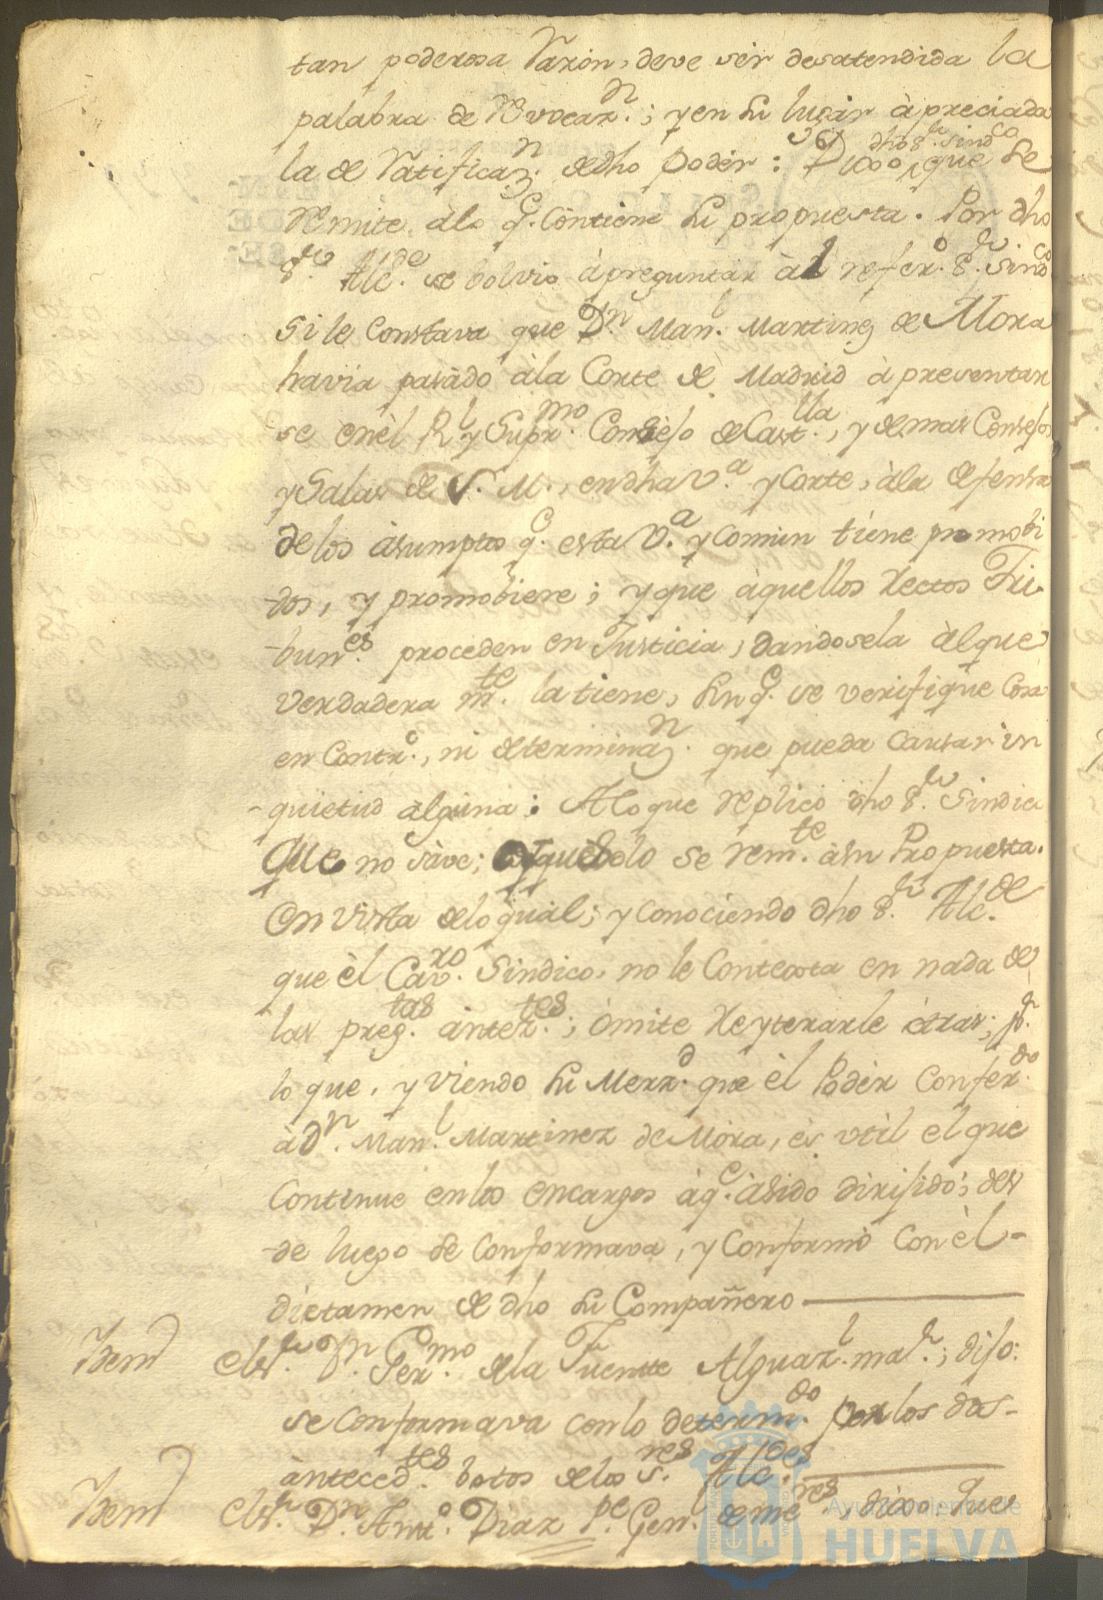 tan poderosa Razon, deve ser desatendida la
palabra de Revocaz.n; y en su lugar àpreciada
la de Ratificaz.n de dho Poder: dho S.r Sind.co que se
Remite àlo q.e Contiene su propuesta. Por dho
S.r Alc.de se bolvio à preguntar àl refer.o S.r Sind.co
si le Constava que D.n Man.l Martinez de Mora
havia pasado àla Corte de Madrid à presentar
se en èl R.l y Supr.mo Consejo de Cast.lla, y demas Consejos
y Salas de S. M., en dha V.a y Corte, àla defensa
de los asumptos q.e esta V.a y Comun tiene promobi
dos, y promobiere; y que àquellos Rectos Tri-
bun.es proceden en Justicia, dandosela àl que
verdadera m.te la tiene, sin q.e se verifique Cosa
en Contr.o, ni determinaz.n que pueda Causar in
quietud alguna: Alo que Replicò dho S.r Sindico
Que no sàve; y que solo se rem.te àsu Propuesta.
En vista delo qual; y conociendo dho S.r Alc.de
que èl Cav.ro Sindico, no le Contexta en nada de
las preg.tas anter.tes; òmite Reyterarle òtras; p.r
lo que, y viendo su Merz.d que èl Poder Confer.do
à D.n Man.l Martinez de Mora, es util el que
Continue en los encargos àq.e àsido dirijido; des
de luego se Conformava, y Conformò Con èl-
dictamen de dho su Compañero
Item El S.r D.n Ger.mo dela Fuente Alguaz.l ma.r; dijo:
se Conformava con lo determ.do por los dos-
àntecede.tes botos de los S.res Alc.des
Item El S.r D.n Ant.o Diaz P.e Gen.l de me.res, dixo: Que
Ayuntamiento de
HUELVA